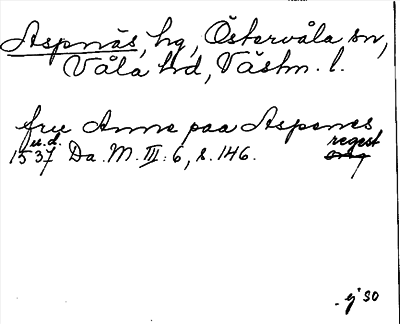 Aspnäs, hg, Östervåla sn,
Våla hd, Västm. l.
fru Anne paa Aspenes
u.d. regest
1537 Da. M. III: 6, s. 146. orig
- ej 50